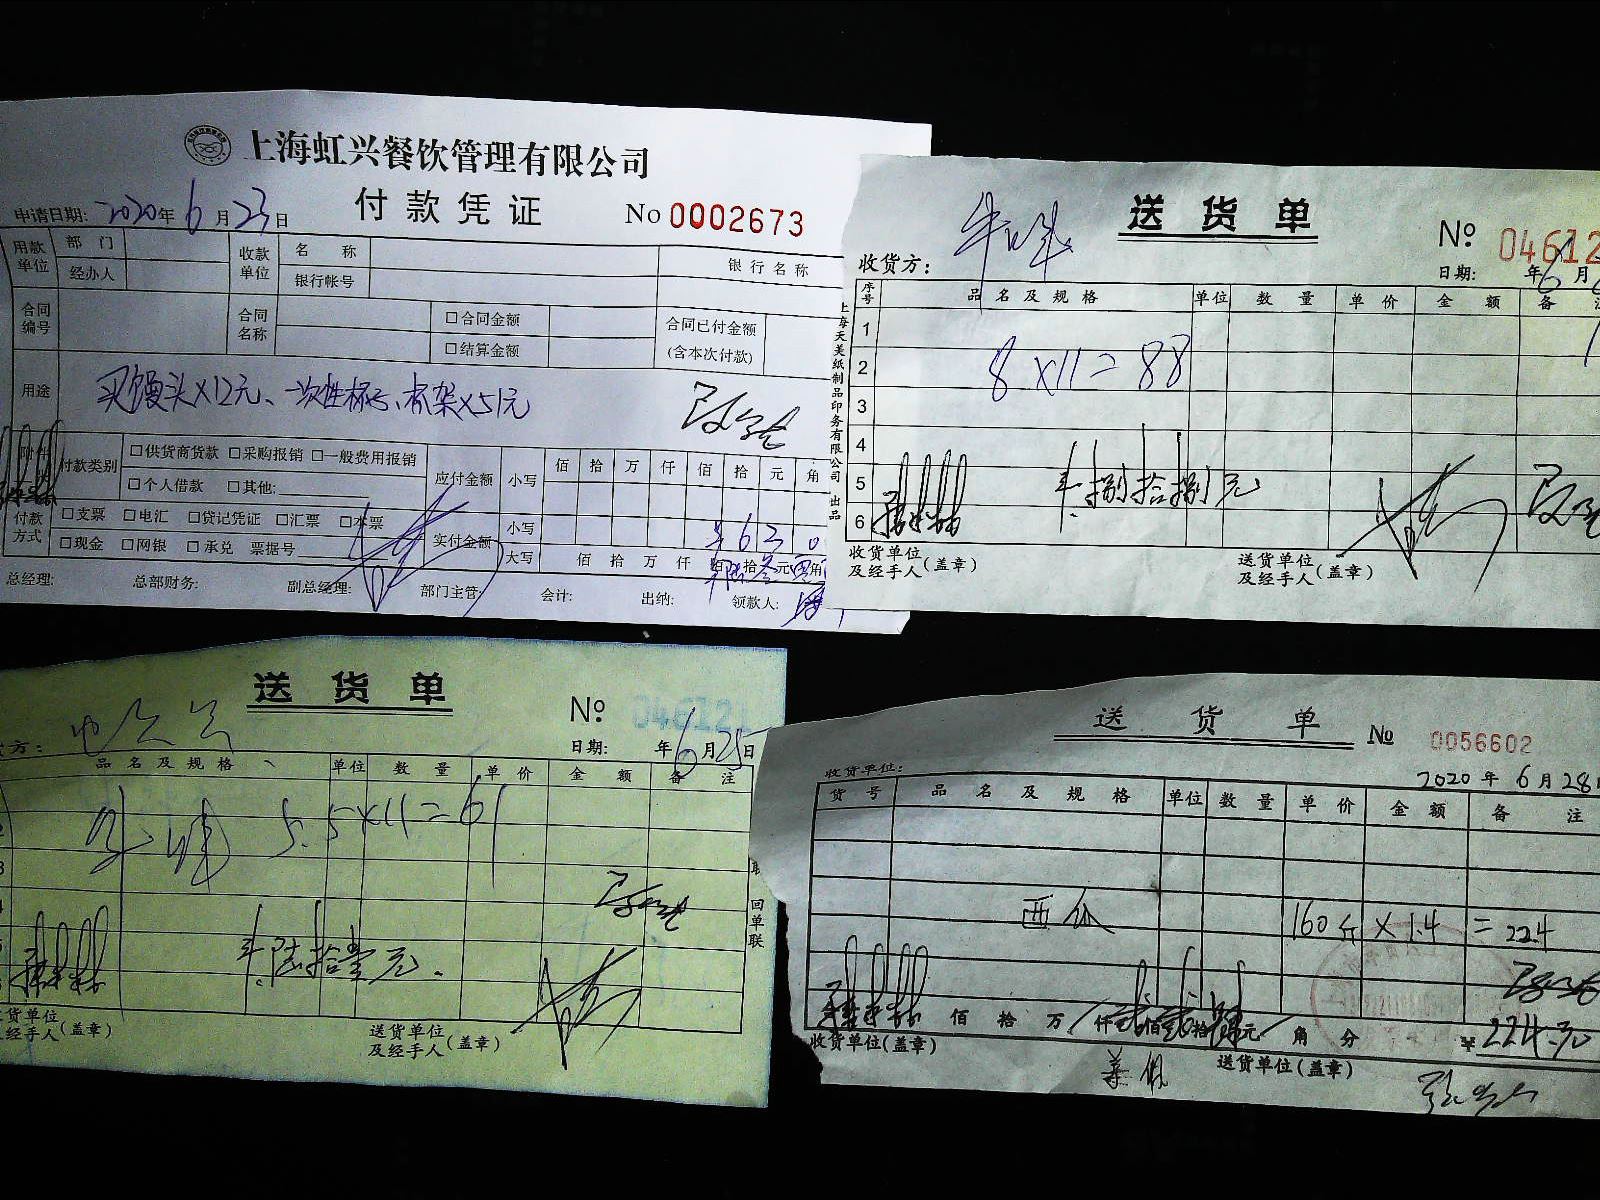 上海虹兴餐饮管理有限公司
付款凭证
No 0002673
申请日期: 2020年6月23日
用款单位 部门 收款单位 名称 银行名称
经办人 银行帐号
合同编号 合同名称 □合同金额 合同已付金额
□结算金额 (含本次付款)
用途 买馒头×12元、一次性杯子、杯架×51元
付款类别 □供货商货款 □采购报销 □一般费用报销 应付金额 小写 佰 拾 万 仟 佰 拾 元 角
□个人借款 □其他:
付款方式 □支票 □电汇 □贷记凭证 □汇票 □本票 实付金额 小写 63 0
□现金 □网银 □承兑 票据号 大写 佰 拾 万 仟 佰 陆拾叁元 角
总经理: 总部财务: 副总经理: 部门主管: 会计: 出纳: 领款人:
送货单
№ 046122
收货方:
日期: 年6月
序号 品名及规格 单位 数量 单价 金额 备注
1
2 8×11=88
3
4
5 捌拾捌元
6
收货单位及经手人(盖章) 送货单位及经手人(盖章)
上海天美纸制品印务有限公司 出品
送货单
№ 046121
方:
日期: 年6月25日
品名及规格 单位 数量 单价 金额 备注
5.5×11=61
陆拾壹元
货单位及经手人(盖章) 送货单位及经手人(盖章)
回单联
送货单
№ 0056602
收货单位:
2020年6月28日
货号 品名及规格 单位 数量 单价 金额 备注
西瓜 160斤 ×1.4 =224
佰 拾 万 仟 佰 拾 元 角 分 ¥
收货单位(盖章) 送货单位(盖章)